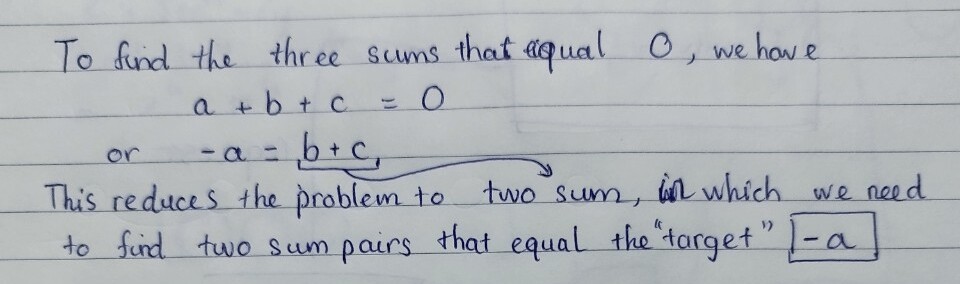 To find the three sums that equal 0, we have
a + b + c = 0
or -a = b + c,
This reduces the problem to two sum, in which we need
to find two sum pairs that equal the "target" -a